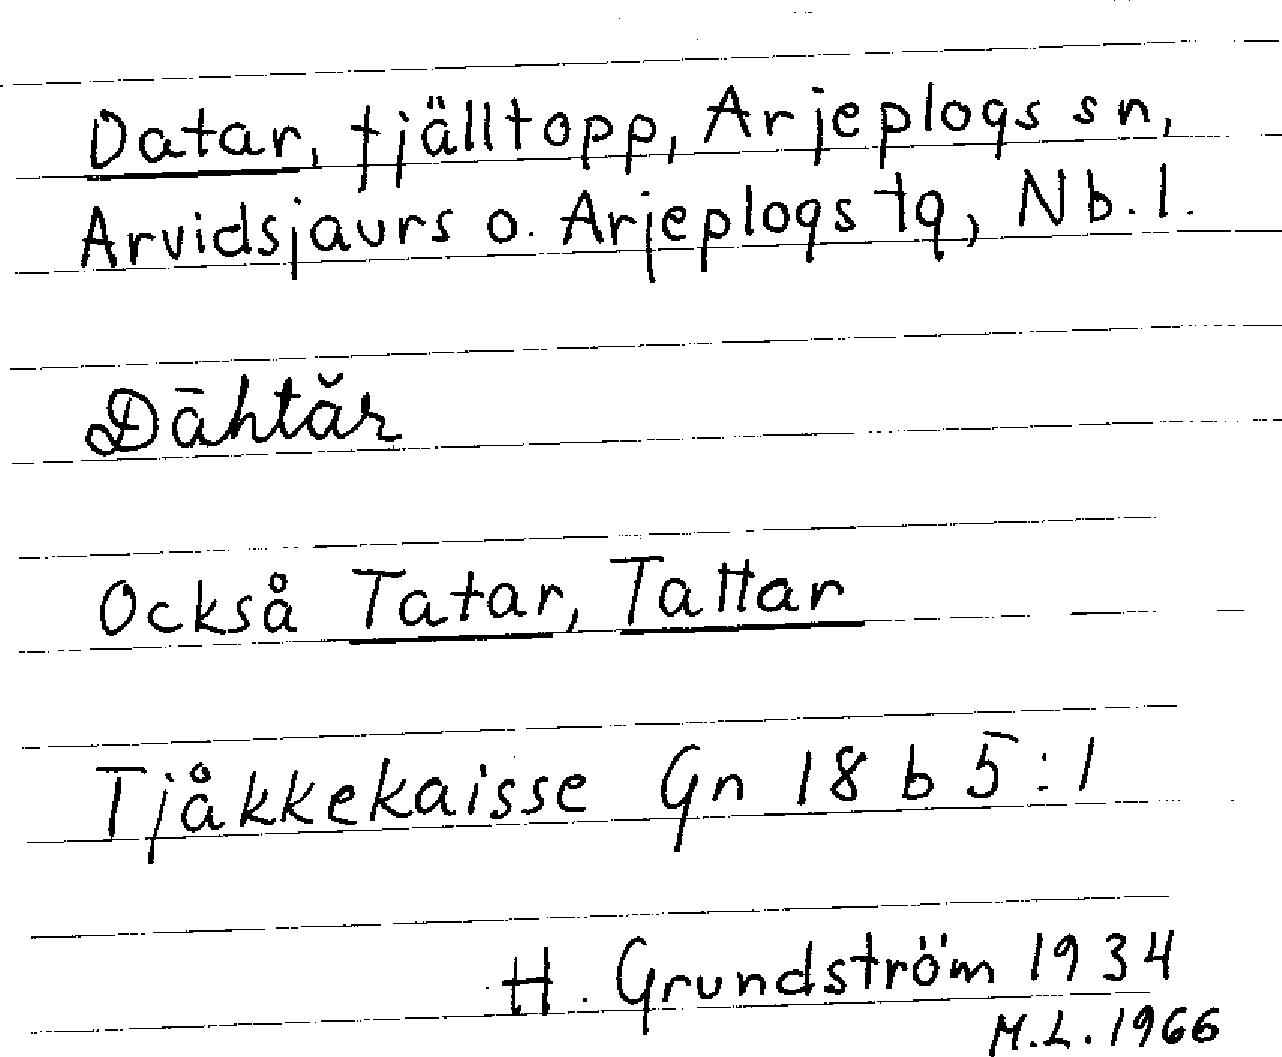 Datar, fjälltopp, Arjeplogs sn,
Arvidsjaurs o. Arjeplogs tg, Nb. l.
Dāhtăr
Också Tatar, Tattar
Tjåkkekaisse Gn 18 b 5:1
H. Grundström 1934
M.L. 1966